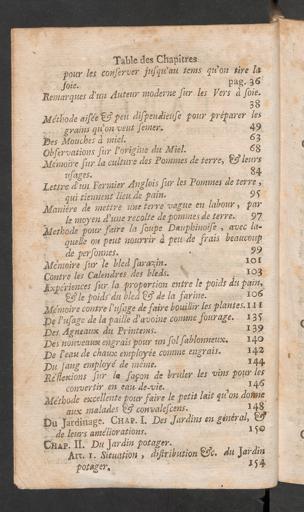 Table des Chapitres
pour les conserver jusqu'au tems qu'on tire la
soie. pag. 36
Remarques d'un Auteur moderne sur les Vers à soie.
38
Méthode aisée & peu dispendieuse pour préparer les
grains qu'on veut semer. 49
Des Mouches à miel. 63
Observations sur l'origine du Miel. 68
Mémoire sur la culture des Pommes de terre, & leurs
usages. 84
Lettre d'un Fermier Anglois sur les Pommes de terre,
qui tiennent lieu de pain. 95
Maniere de mettre une terre vague en labour, par
le moyen d'une recolte de pommes de terre. 97
Methode pour faire la soupe Dauphinoise, avec la-
quelle on peut nourrir à peu de frais beaucoup
de personnes. 99
Mémoire sur le bled sarazin. 101
Contre les Calendres des bleds. 103
Expériences sur la proportion entre le poids du pain,
& le poids du bled & de la farine. 106
Mémoire contre l'usage de faire bouillir les plantes. 111
De l'usage de la paille d'avoine comme fourage. 135
Des Agneaux du Printems. 139
Des nouveaux engrais pour un sol sablonneux. 140
De l'eau de chaux employée comme engrais. 142
Du sang employé de même. 144
Réflexions sur la façon de bruler les vins pour les
convertir en eau-de-vie. 146
Méthode excellente pour faire le petit lait qu'on donne
aux malades & convalescens. 148
Du Jardinage. CHAP. I. Des Jardins en général, &
de leurs améliorations. 150
CHAP. II. Du Jardin potager.
Art. 1. Situation, distribution &c. du Jardin
potager. 154